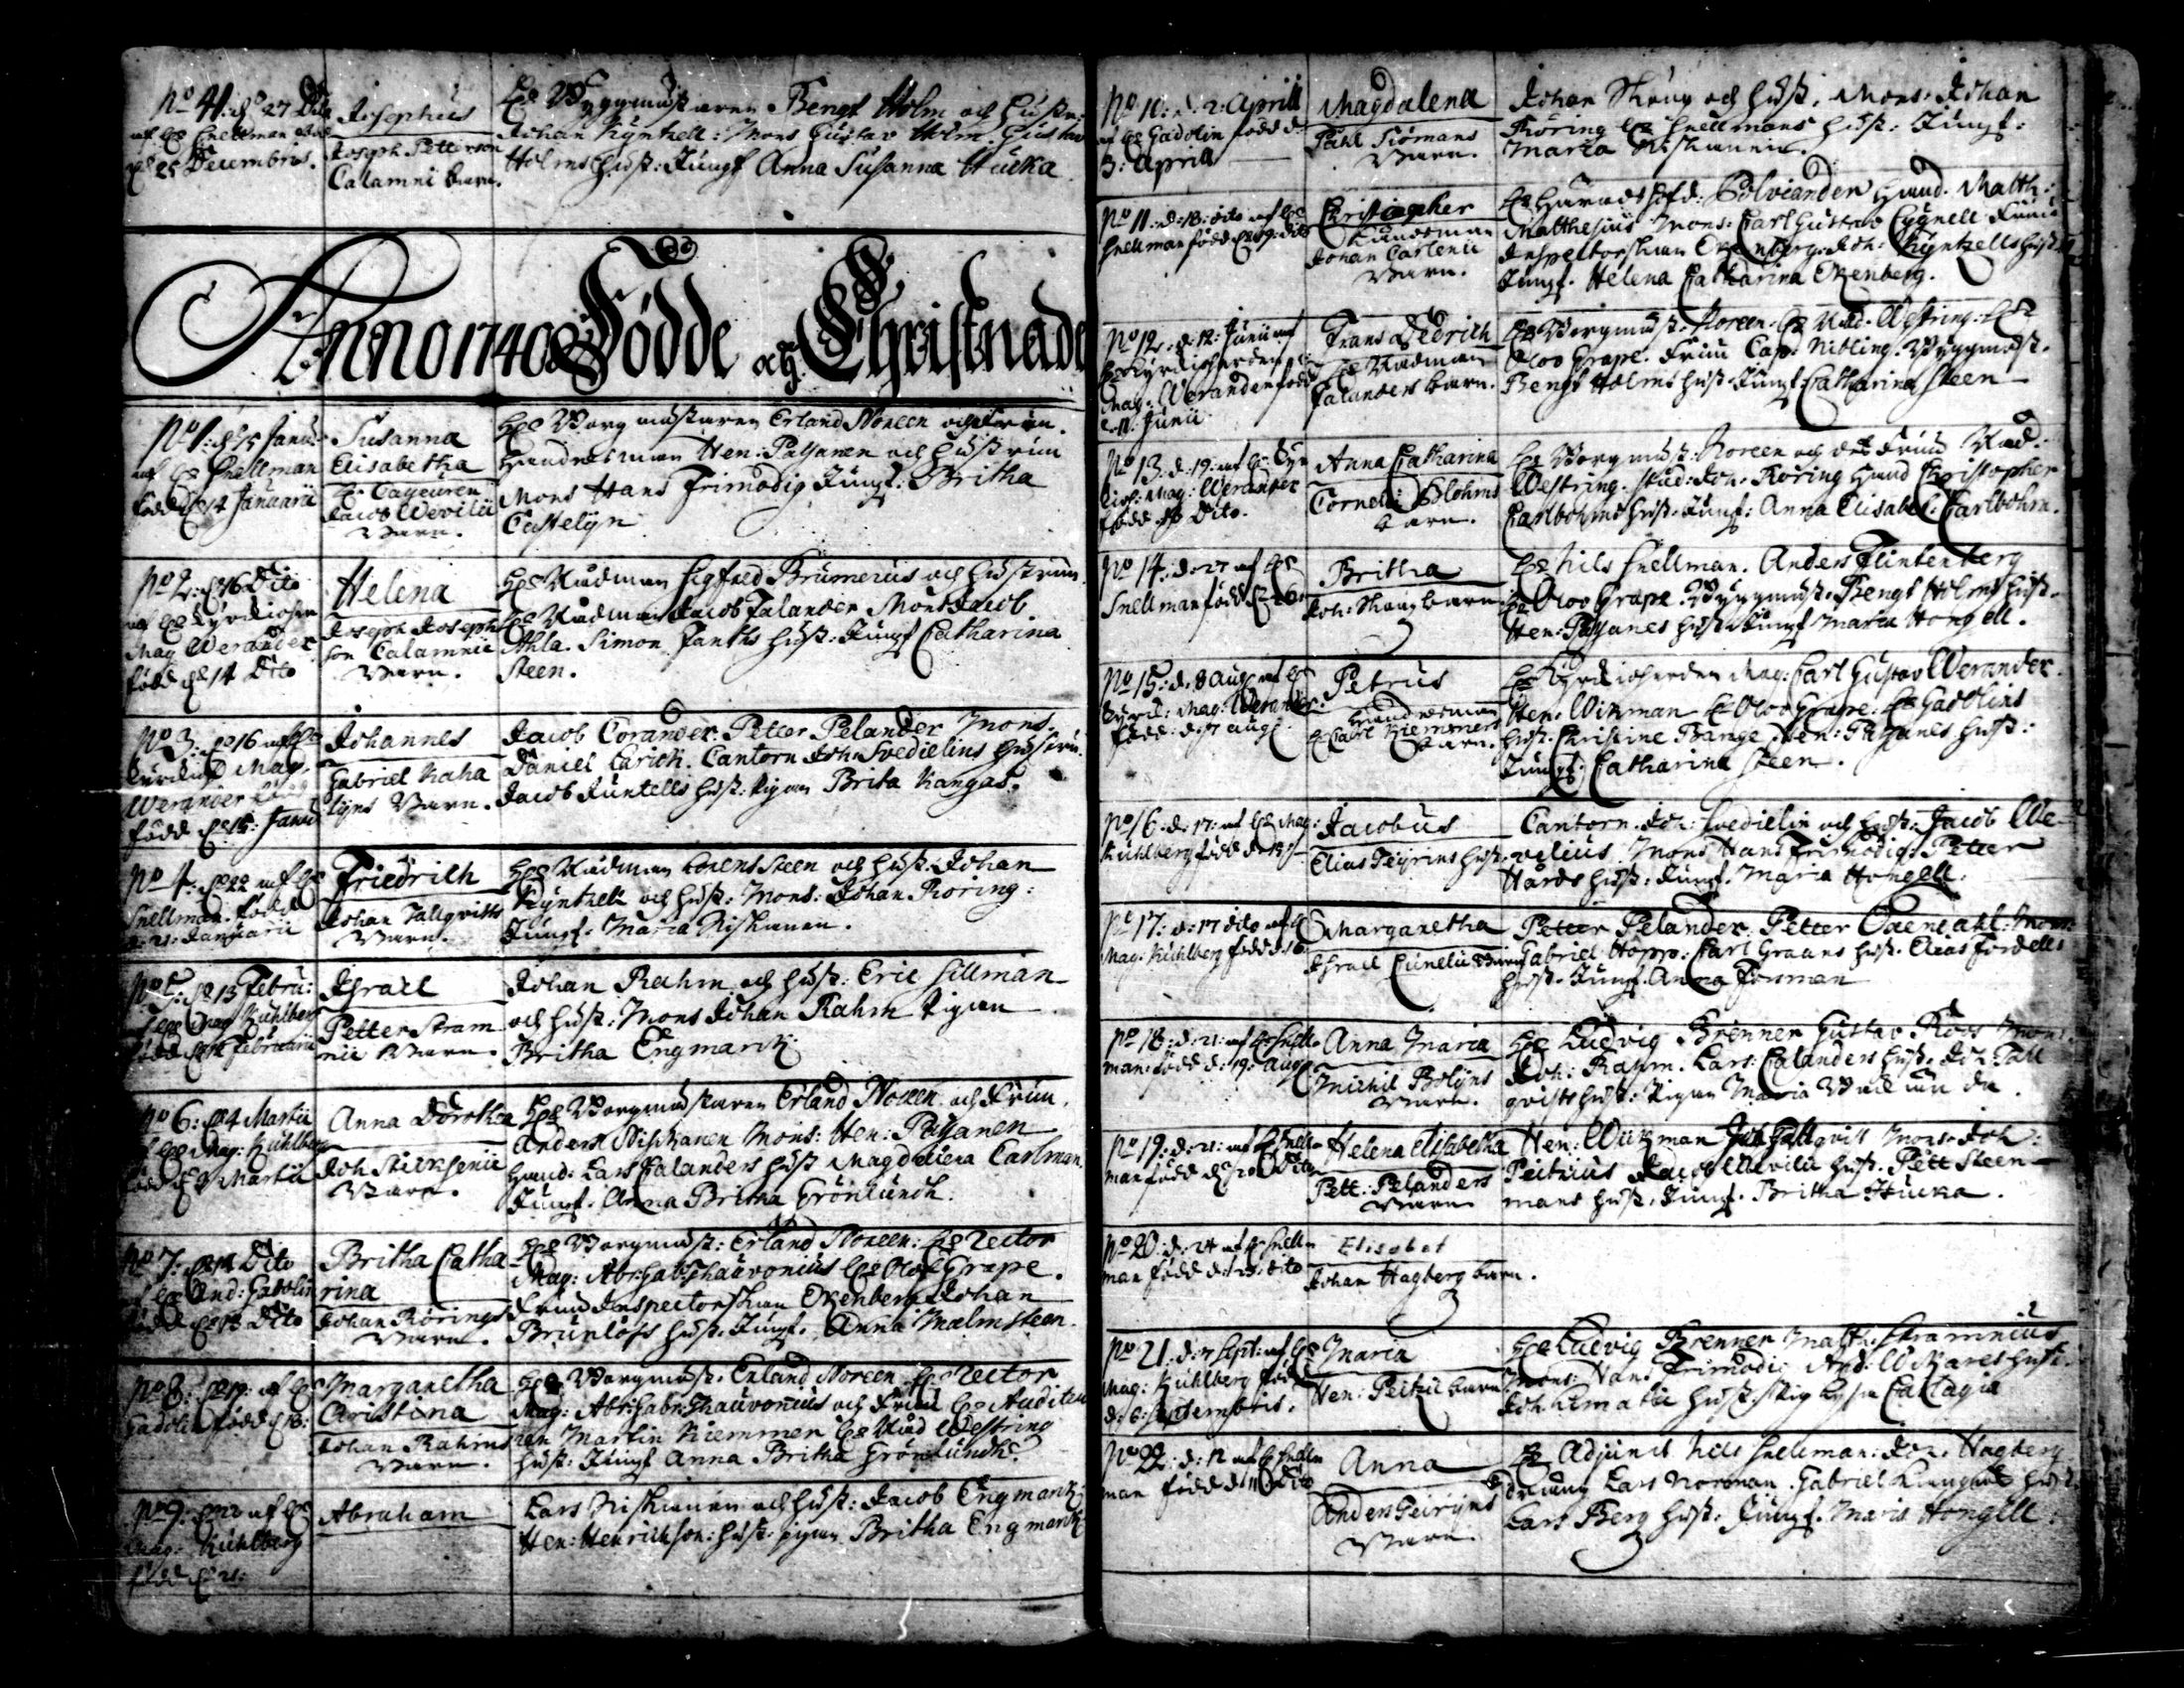 No 41: d: 27 Dito
af H: Snellman född
d: 25 Decembris.
Josephus
Joseph Petterson
Calamnii barn.
H: Byggmästaren Bengt Holm och hustru
Johan Kyntzell: Mons Gustav Holm Gustav
Holms hust: Jungf Anna Susanna Hucka
Anno 1740 Födde och Christnade
No 1: d: 15 Janu:
af H: Snellman
född d: 14 Januarii
Susanna
Elisabetha
Jacob Wevilii
Barn.
H: Borgmästaren Erland Noreen och Frun.
Handelsman Hen: Paljanen och hustrun
Mons Hans Frimodig Jungf: Britha
Castelijn
No 2: d: 16 Dito
af H: Kyrckioherr
Mag Werander
född d: 14 Dito
Helena
Joseph Joseph
son Calamnii
Barn.
H: Rådman Sigfred Brumerus och hustrun
H: Rådman Jacob Falander Mons Jacob
Ahla. Simon Fanths hust: Jungf Catharina
Steen.
No 3: d: 16 af H:
Kyrckioh Mag.
Werander
född d: 15: Janu
Johannes
Gabriel Kaha
lyns Barn.
Jacob Corander. Petter Pelander Mons.
Daniel Carich. Cantorn Joh: Svedielius hustru.
Jacob Juntells hust: Pigan Brita Kangas.
No 4: d: 22 af H:
Snellman. född
d: 21: Januarii
Friedrich
Johan Tallqvists
Barn.
H: Rådman Lorens Steen och hust: Johan
Kyntzell och hust: Mons: Johan Roring:
Jungf: Maria Niskanen.
No 5: d: 13 Febru:
af H: Mag Kuhlberg
född d: 12 Februarii
Israel
Petter Stram
nii Barn.
Johan Rahm och hust: Eric Sillman
och hust: Mons Johan Rahm Pigan
Britha Engmarck
No 6: d: 4 Martii
af H: Mag: Kuhlberg
född d: 3 Martii
Anna Dorothea
Barn.
H: Borgmästaren Erland Noreen och Frun.
Anders Niskanen Mons: Hen: Paljanen
Hand: Lars Calanders hust Magdalena Carlman.
Jungf. Anna Britha Grönlundh.
No 7: d: 14 Dito
af H: And: Gadolin
född d: 13 Dito
Britha Catha
rina
Johan Rörings
Barn.
H: Borgmäst: Erland Noreen: H: Rector
Mag: Abr: Gab: Thauvonius H: Olof Grape.
Fru Inspectorskan Ekenberg Johan
Brunlöfs hust. Jungf. Anna Malmsteen.
No 8: d: 19: af H:
Gadolin född d: 18:
Margaretha
Christina
Johan Rahms
Barn.
H: Borgmäst: Erland Noreen H: Rector
Mag: Abr: Gabr: Thauvonius och Fru H: Auditeu
ren Martin Kiemmer H: Råd Westring
hust: Jungf Anna Britha Grönlundh.
No 9: d: 22 af H:
Mag: Kuhlberg
född d: 21:
Abraham
Lars Niskanen och hust: Jacob Engmarck:
Hen: Henrichson: hust: pigan Britha Engmarck
No 10: d: 2: Aprill
af H: Gadolin född d:
3: April
Magdalena
Påhl Siömans
Barn.
Johan Skoug och hust. Mons. Johan
Roring H: Snellmans hust: Jungf:
Maria Niskanen.
No 11: d: 18: Dito af H:
Snellman född d: 19: Dito
Christopher
Länsman
Johan Carlenii
Barn.
H: Häradshöfd: Polviander Hand. Matth:
Mathesius Mons: Carl Gustav Cygnell Fru
Inspectorskan Ekenberg. Joh: Kyntzells hust:
Jungf. Helena Catharina Ekenberg.
No 12: d: 12: Junii af
H: Kyrckioherden
Mag: Werander född
d: 11. Junii
Frans Fredrich
H: Rådman
Falanders barn.
H: Borgmäst. Noreen. H: Råd. Westring: H:
Oloo Grape. Fru Cap: Nibling. Byggmäst.
Bengt Holms hust. Jungf Catharina Steen
No 13: d: 19: af H: Kyr
kioh: Mag: Werander
född d: Dito.
Anna Catharina
Cornelii Blohms
barn.
H: Borgmäst: Noreen och dess Fru Råd.
Westring. Stud: Joh: Roring Hand Christopher
Carlbohms hust. Jungf: Anna Elisabet: Carlbohm.
No 14: d: 27 af H:
Snellman född d: 26:
Britha
Joh: Skoug barn.
H: Nils Snellman. Anders Flintenberg
H: Oloo Grape. Byggmäst. Bengt Holms hust.
Hen: Paljanes hust. Jungf Maria Hongell.
No 15: d. 8 Aug af H:
Kyrck: Mag: Werander:
född: d: 7 Aug:
Petrus
Handelsman
H: Carl Kiemmers
barn.
H: Kyrckioherden Mag: Carl Gustav Werander.
Hen: Wikman H: Oloo Grape: H: Gadolins
hust: Christine Bange. Hen: Paljanes hust:
Jungf: Catharina Steen.
No 16: d: 17: af H: Mag:
Kuhlberg född d: 15
Jacobus
Cantorn. Joh: Svedielin och hust: Jacob We-
velius Mons Hans Frimodig: Petter
Hårds hust: Jungf. Maria Hongell.
No 17: d: 17 dito af H:
Mag: Kuhlberg född d: 16
Margaretha
Israel Cunelii Barn
Petter Pelander. Petter Odendahl: Mons:
Gabriel Hopp: Carl Graans hust: Claas Fordells
hust. Jungf. Anna Forsman
No 18: d: 21: af H: Snell
man: född d: 19: Aug:
Anna Maria
Michil Bolijns
Barn.
H: Ludvig Brenner Gustav Roos Mons.
Joh: Rahm. Lars: Calanders hust. Joh Tall
qvists hust: Pigan Maria
No 19: d: 21: af H: Snell
man född d: 20 Dito
Helena Elisabetha
Pett: Pelanders
Barn
Hen: Wikman Joh Tallqvist Mons. Joh:
Peitzius Jacob Wevilii hust. Pett Steen
mans hust, Jungf. Britha Hucka.
No 20: d: 24 af H: Snell
man född d: 23: dito
Elisabet
Johan Hagberg barn.
No 21: d: 7 Sept: af H:
Mag: Kuhlberg född
d: 6: Septembris.
Maria
Hen: Peitzii barn
H: Ludvig Brenner Matth: Stramnius
Mons: Hans Frimodig And: Wikars hust.
hust. Pig Lisa Castagia
No 22: d: 12 af H: Snell
man född d: 11 Dito
Anna
Anders Geirijns
Barn
H: Adjunct Nils Snellman: Joh: Hagberg
Dräng Lars Norman. Gabriel hust.
Lars Berg hust. Jungf. Maria Hongell.